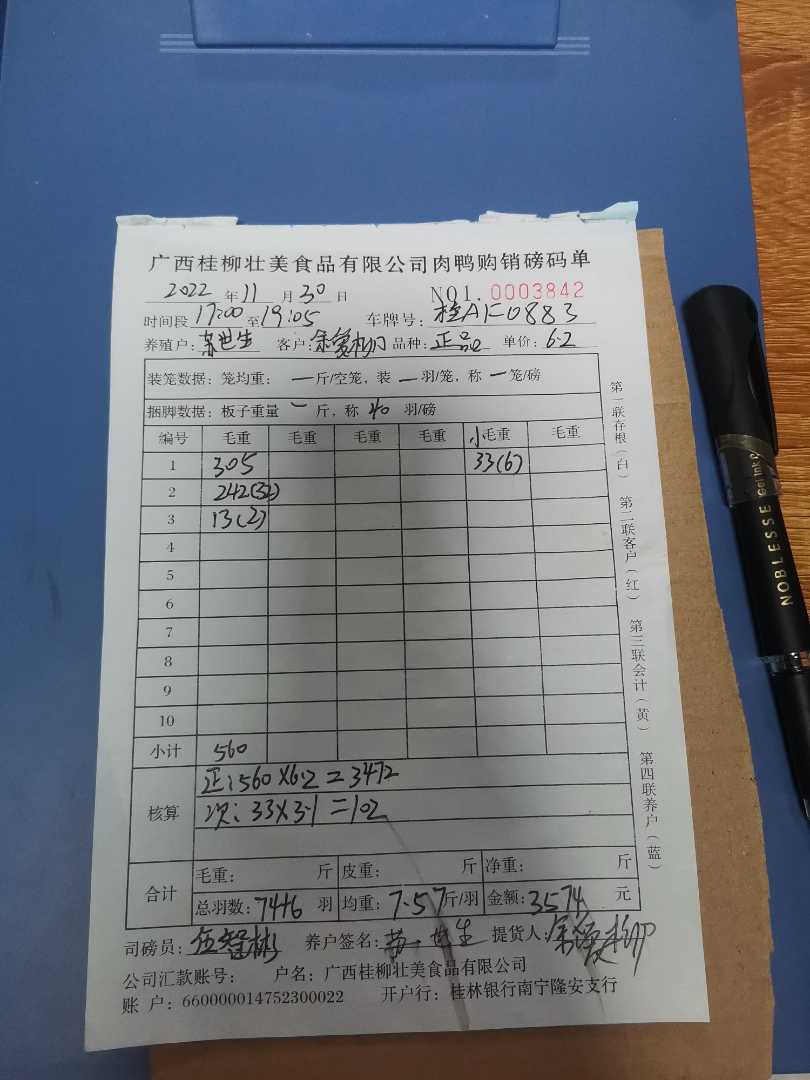 广西桂柳壮美食品有限公司肉鸭购销磅码单
2022 年 11 月 30 日 NO1. 0003842
时间段 17:00 至 19:05 车牌号: 桂AF0883
养殖户: 世生 客户: 品种: 正品 单价: 6.2
装笼数据: 笼均重: 一 斤/空笼, 装 一 羽/笼, 称 一 笼/磅
捆脚数据: 板子重量 一 斤, 称 40 羽/磅
编号 毛重 毛重 毛重 毛重 小毛重 毛重
1 305 33(6)
2 242(32)
3 13(2)
4
5
6
7
8
9
10
小计 560
核算 正: 560×6.2=3472
次: 33×3.1=102
合计 毛重: 斤 皮重: 斤 净重: 斤
总羽数: 74+6 羽 均重: 7.57 斤/羽 金额: 3574 元
司磅员: 伍智彬 养户签名: 世生 提货人:
公司汇款账号: 户名: 广西桂柳壮美食品有限公司
账 户: 660000014752300022 开户行: 桂林银行南宁隆安支行
第一联存根(白) 第二联客户(红) 第三联会计(黄) 第四联养户(蓝)
NOBLESSE Gel ink